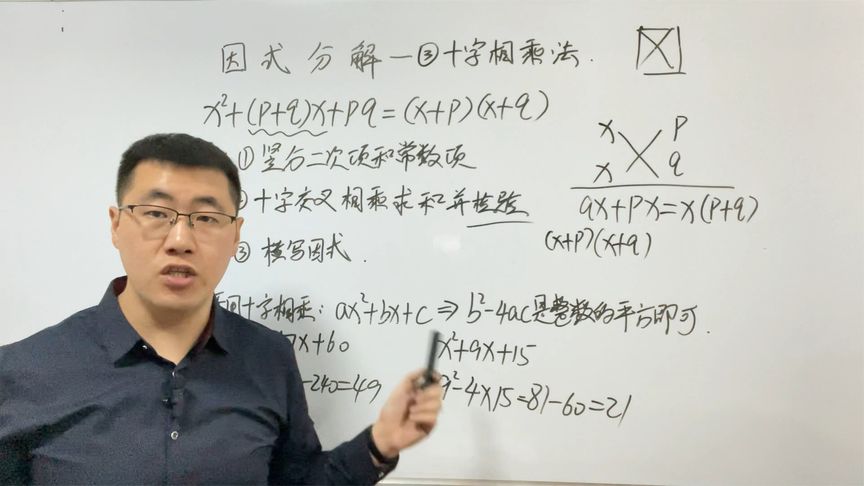 因式分解—③十字相乘法.
x²+(p+q)x+pq=(x+p)(x+q)
①竖分二次项和常数项
十字交叉相乘求和并检验
③横写因式.
x p
x q
qx+px=x(p+q)
(x+p)(x+q)
十字相乘:ax²+bx+c⇒b²-4ac是整数的平方即可.
x+60
x²+9x+15
-240=49
9²-4×15=81-60=21